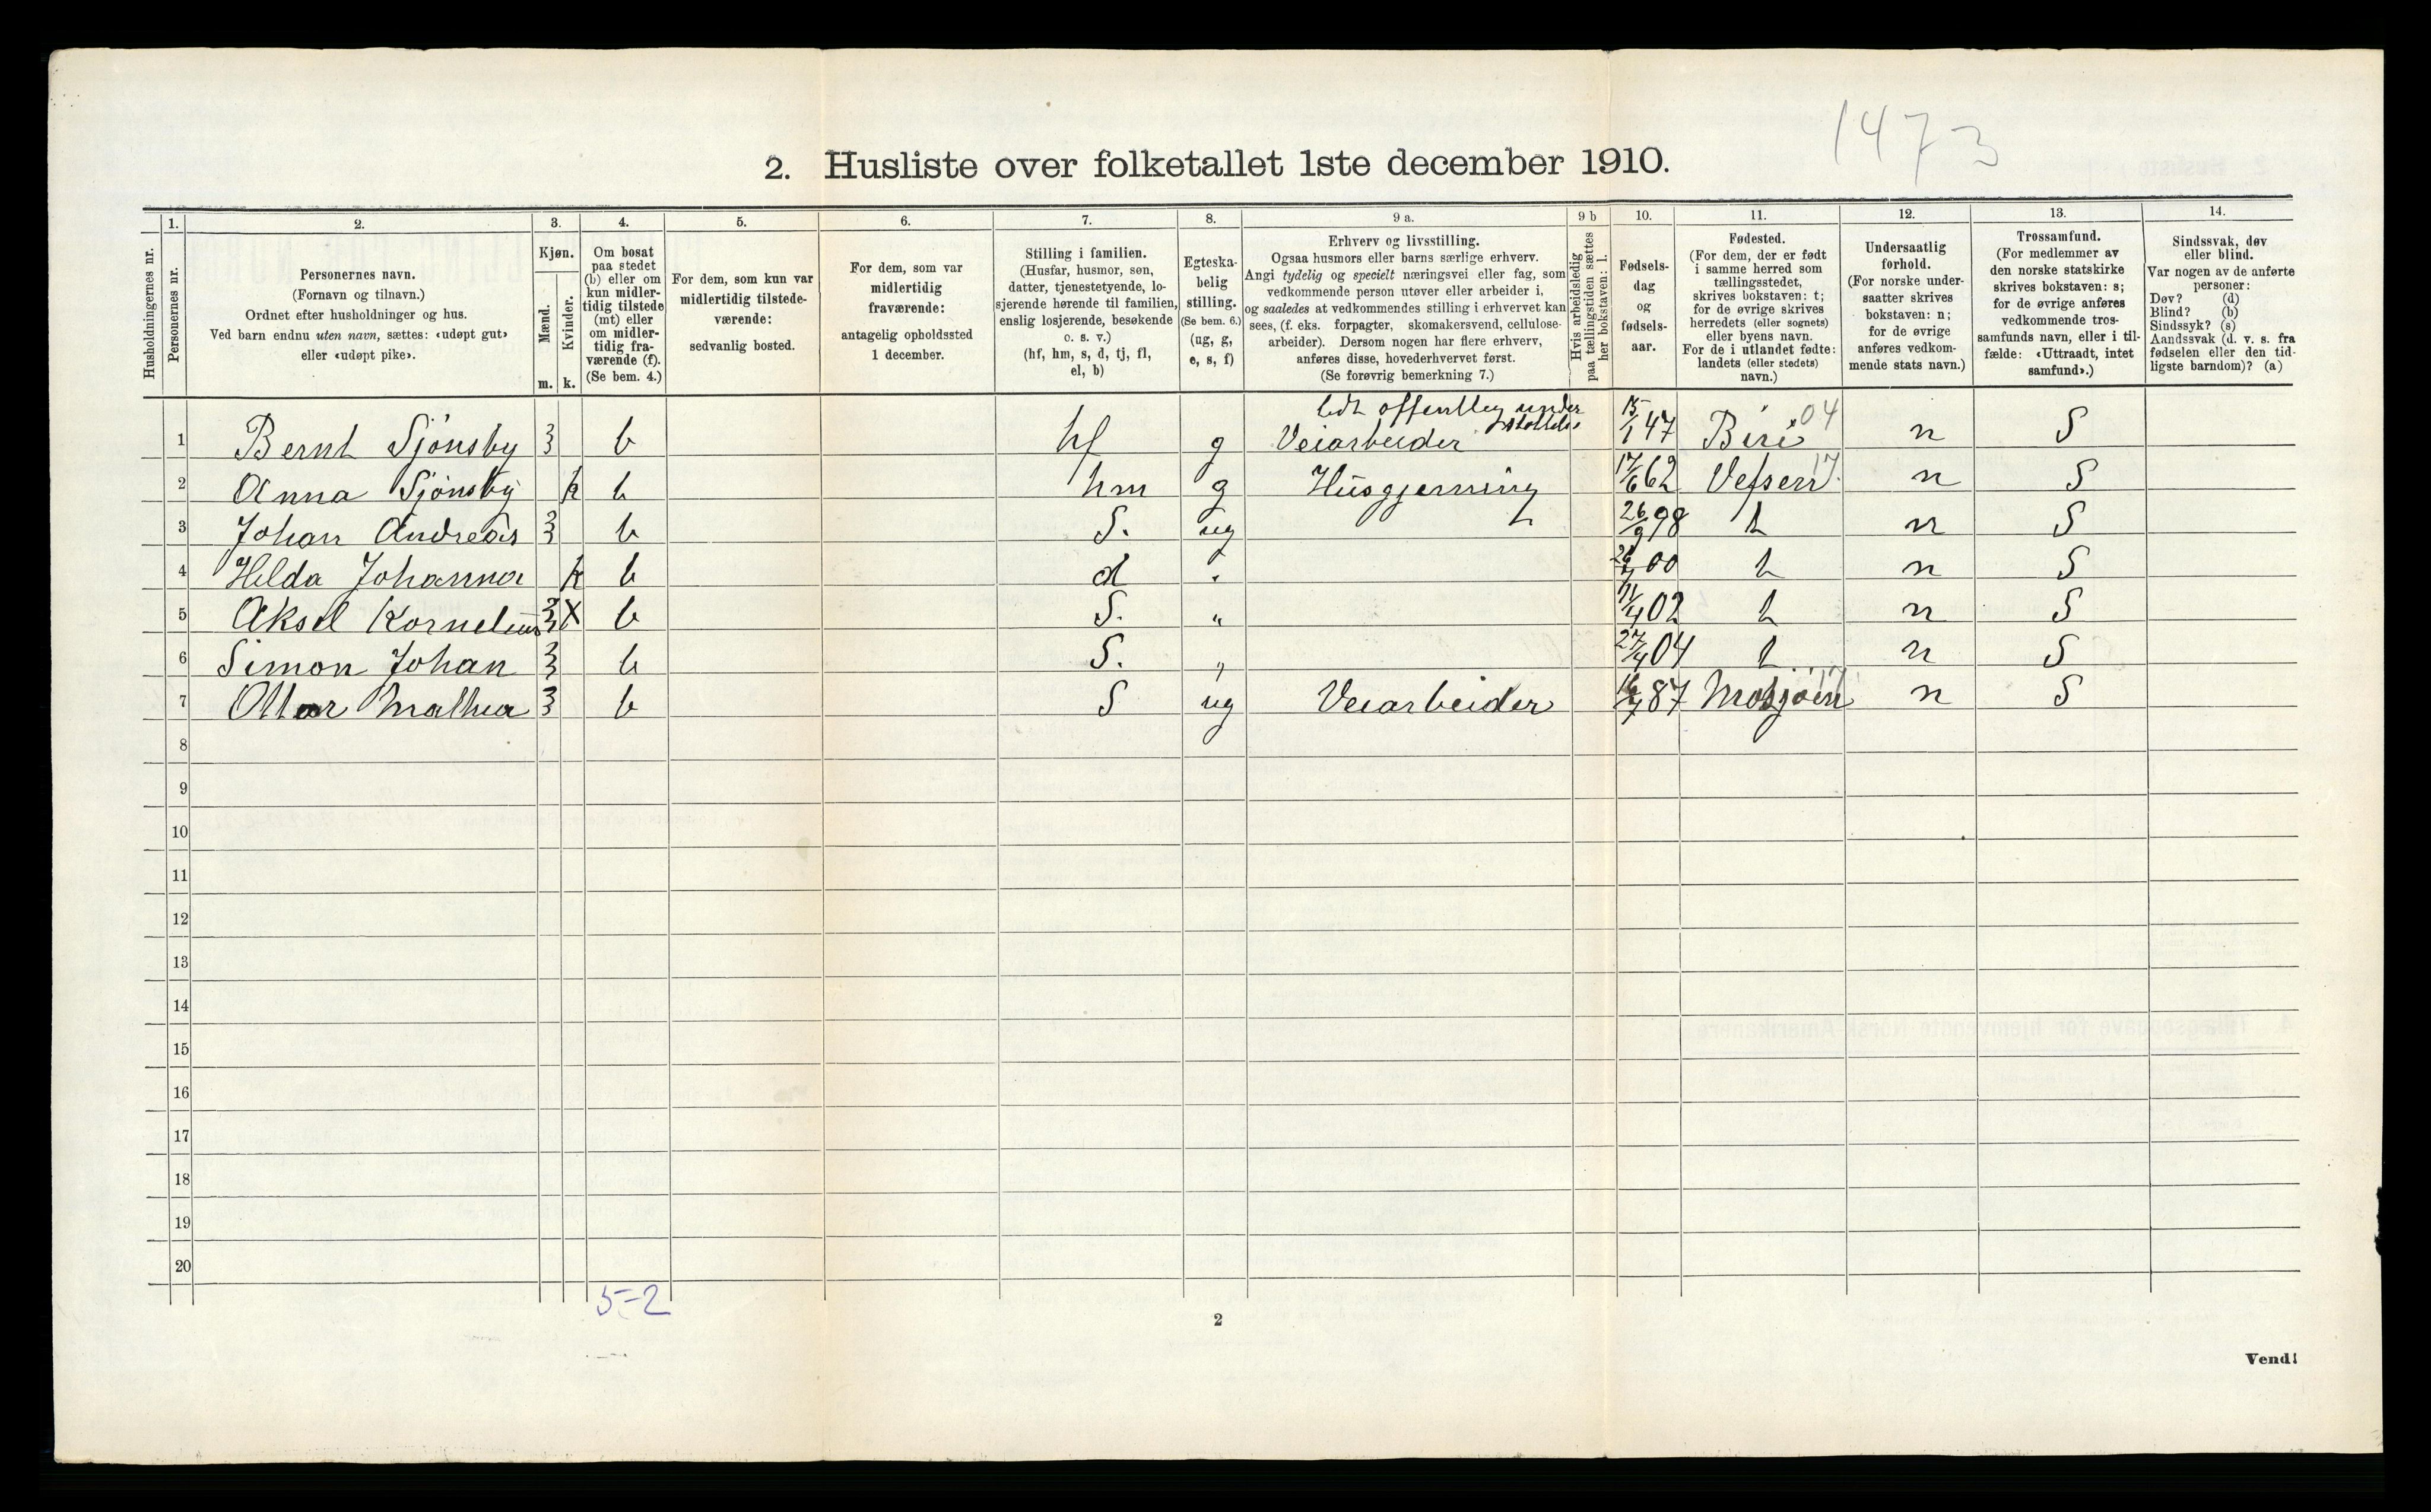 1473
2. Husliste over folketallet 1ste december 1910.
1. 2. 3. 4. 5. 6. 7. 8. 9 a. 9 b 10. 11. 12. 13. 14.
Husholdningernes nr.
Personernes nr.
Personernes navn.
(Fornavn og tilnavn.)
Ordnet efter husholdninger og hus.
Ved barn endnu uten navn, sættes: «udøpt gut»
eller «udøpt pike».
Kjøn.
Mænd.
Kvinder.
m. k.
Om bosat
paa stedet
(b) eller om
kun midler-
tidig tilstede
(mt) eller
om midler-
tidig fra-
værende (f).
(Se bem. 4.)
For dem, som kun var
midlertidig tilstede-
værende:
sedvanlig bosted.
For dem, som var
midlertidig
fraværende:
antagelig opholdssted
1 december.
Stilling i familien.
(Husfar, husmor, søn,
datter, tjenestetyende, lo-
sjerende hørende til familien,
enslig losjerende, besøkende
o. s. v.)
(hf, hm, s, d, tj, fl,
el, b)
Egteska-
belig
stilling.
(Se bem. 6.)
(ug, g,
e, s, f)
Erhverv og livsstilling.
Ogsaa husmors eller barns særlige erhverv.
Angi tydelig og specielt næringsvei eller fag, som
vedkommende person utøver eller arbeider i,
og saaledes at vedkommendes stilling i erhvervet kan
sees, (f. eks. forpagter, skomakersvend, cellulose-
arbeider). Dersom nogen har flere erhverv,
anføres disse, hovederhvervet først.
(Se forøvrig bemerkning 7.)
Hvis arbeidsledig
paa tællingstiden sættes
her bokstaven: l.
Fødsels-
dag
og
fødsels-
aar.
Fødested.
(For dem, der er født
i samme herred som
tællingsstedet,
skrives bokstaven: t;
for de øvrige skrives
herredets (eller sognets)
eller byens navn.
For de i utlandet fødte:
landets (eller stedets)
navn.)
Undersaatlig
forhold.
(For norske under-
saatter skrives
bokstaven: n;
for de øvrige
anføres vedkom-
mende stats navn.)
Trossamfund.
(For medlemmer av
den norske statskirke
skrives bokstaven: s;
for de øvrige anføres
vedkommende tros-
samfunds navn, eller i til-
fælde: «Uttraadt, intet
samfund».)
Sindssvak, døv
eller blind.
Var nogen av de anførte
personer:
Døv? (d)
Blind? (b)
Sindssyk? (s)
Aandssvak (d. v. s. fra
fødselen eller den tid-
ligste barndom)? (a)
offentlig under
1 Bernt Sjönsby 3 b hf g Veiarbeider 15/1 47 Biri 04 n S
2 Anna Sjönsby k b hm g Husgjerning 17/6 62 Vefsen 17 n S
3 Johan Andreas 3 b S. ug 26/9 98 t n S
4 Hilda Johanna k b d " 00 t n S
5 Aksel Kornelius 3 X b S. " 11/4 02 t n S
6 Simon Johan 3 b S. " 27/4 04 t n S
7 Ottar 3 b S ug Veiarbeider 87 Mosjøen 17 n S
8
9
10
11
12
13
14
15
16
17
18
19
20
5-2
2
Vend!